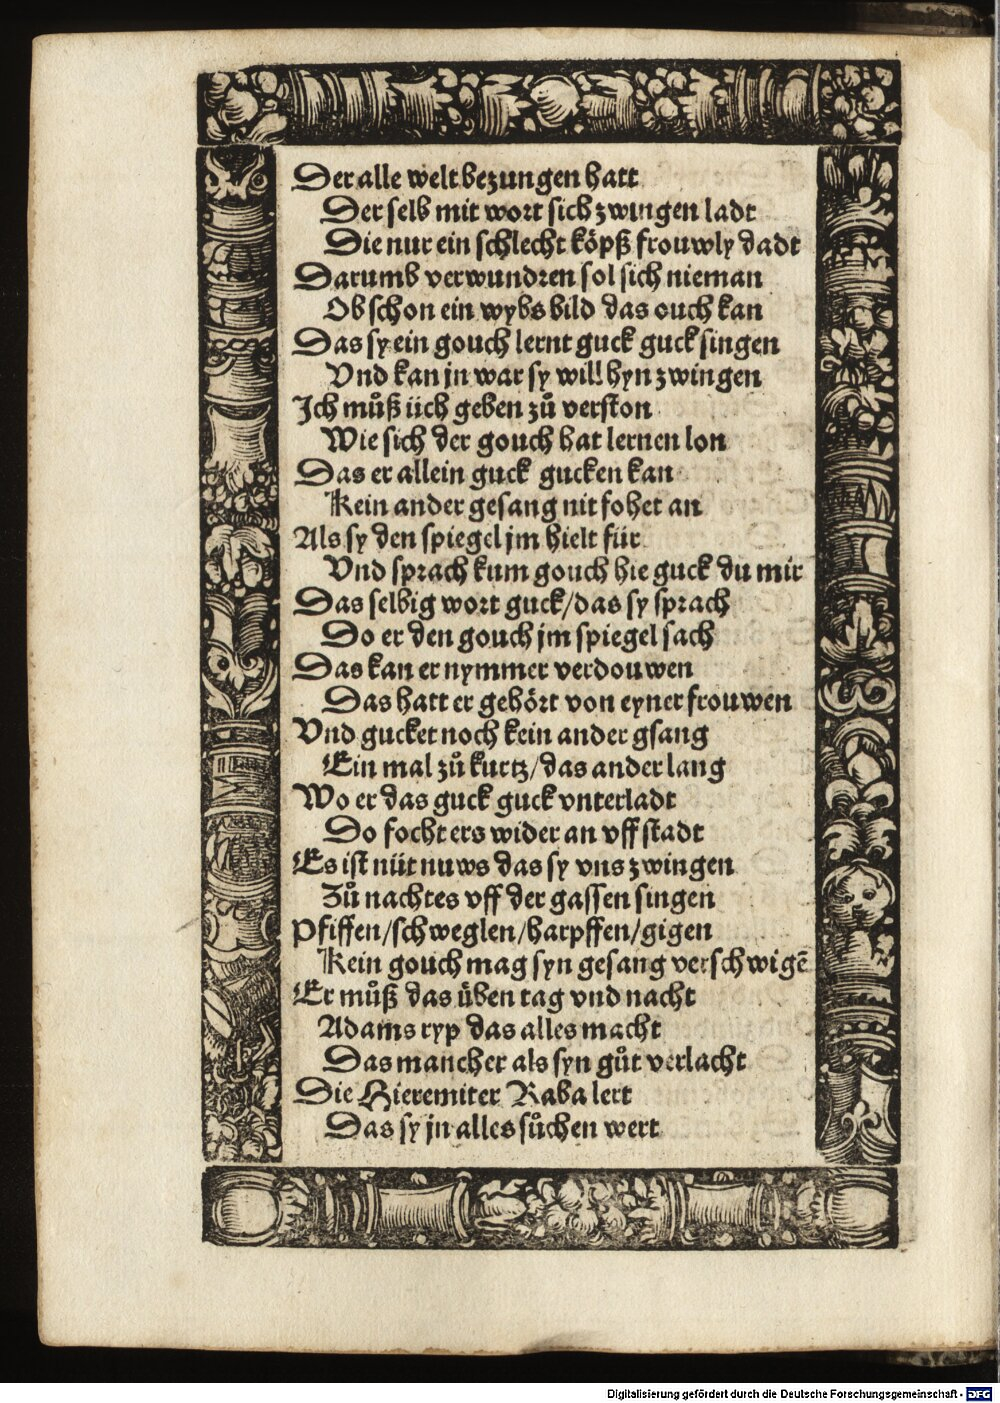 Der alle welt bezungen hatt
Der selb mit wort sich zwingen ladt
Die nur ein schlecht köpß frouwly dadt
Darumb verwundren sol sich nieman
Ob schon ein wybs bild das ouch kan
Das sy ein gouch lernt guck guck singen
Vnd kan jn war sy will hyn zwingen
Jch můß üch geben zů verston
Wie sich der gouch hat lernen lon
Das er allein guck gucken kan
Kein ander gesang nit fohet an
Als sy den spiegel jm hielt für
Vnd sprach kum gouch hie guck du mir
Das selbig wort guck/das sy sprach
Do er den gouch jm spiegel sach
Das kan er nymmer verdouwen
Das hatt er gehört von eyner frouwen
Vnd gucket noch kein ander gsang
Ein mal zů kurtz/das ander lang
Wo er das guck guck vnterladt
Do focht ers wider an vff stadt
Es ist nüt nuws das sy vns zwingen
Zů nachtes vff der gassen singen
Pfiffen/schweglen/harpffen/gigen
Kein gouch mag syn gesang verschwigē
Er můß das üben tag vnd nacht
Adams ryp das alles macht
Das mancher als syn gůt verlacht
Die Hieremiter Raba lert
Das sy jn alles sůchen wert
Digitalisierung gefördert durch die Deutsche Forschungsgemeinschaft - DFG